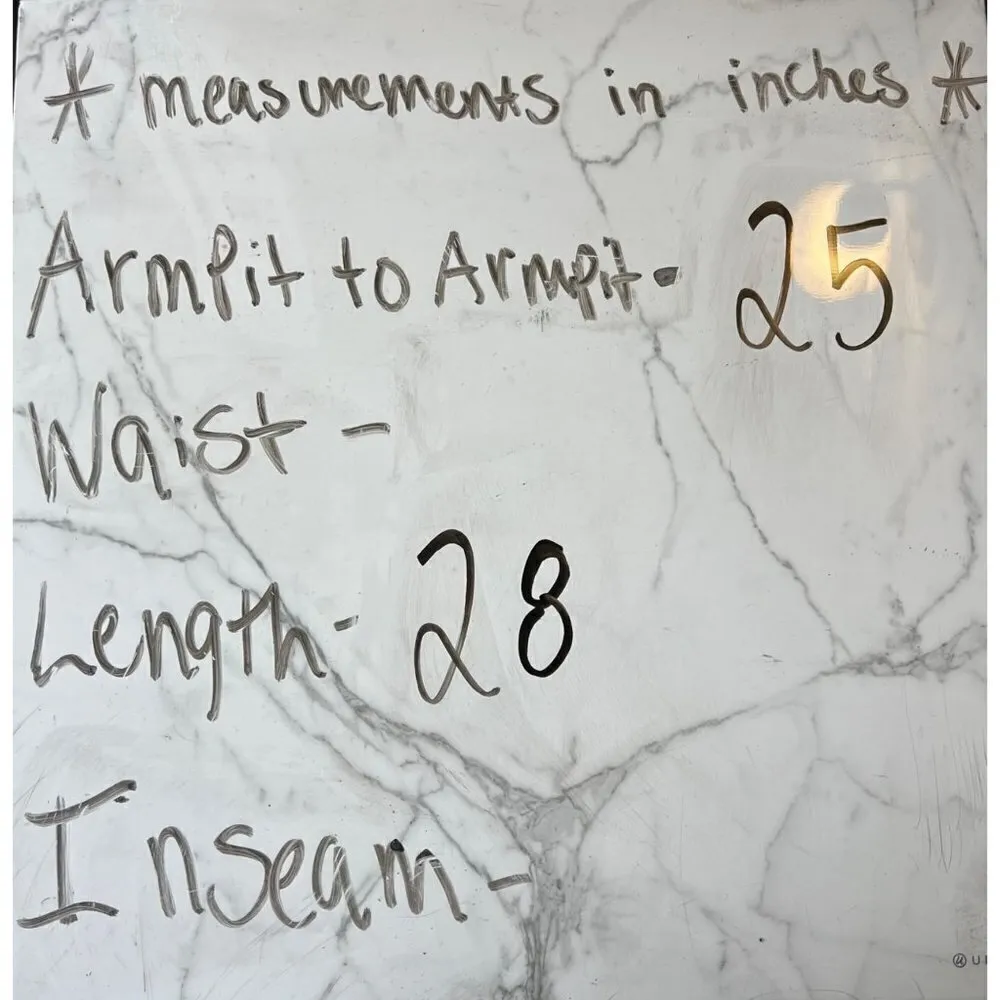 * measurements in inches *
Armpit to Armpit- 25
Waist -
Length- 28
Inseam -